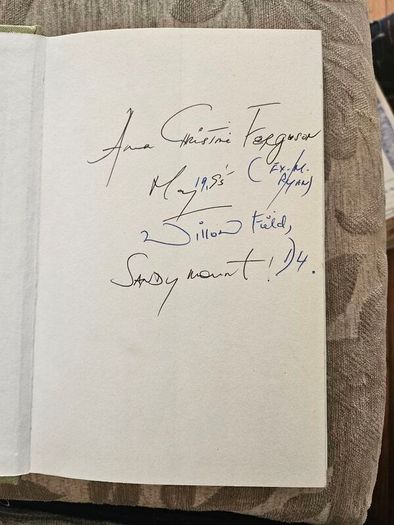 Anna Christine Ferguson
May 19.95 (Ex. M. Ryan)
Willow Field,
Sandymount! D4.